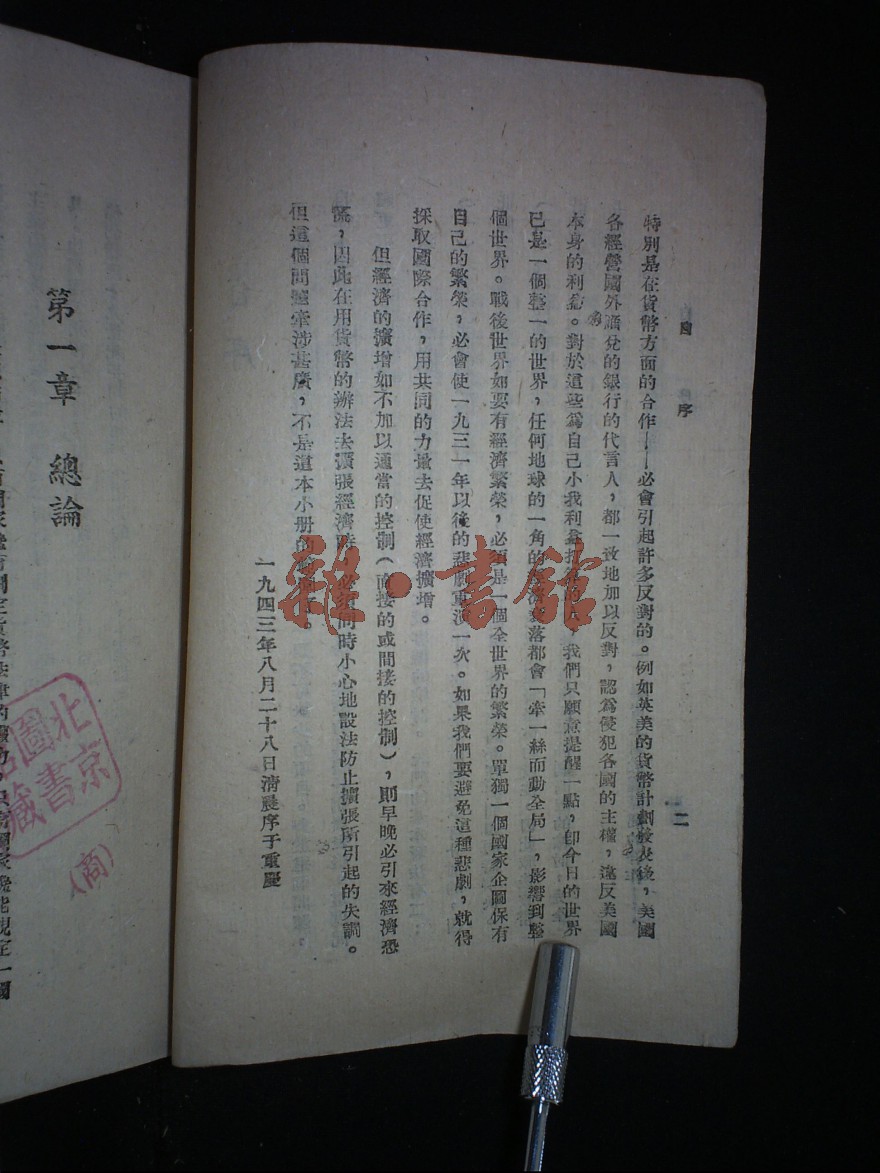 自序
二
特別是在貨幣方面的合作——必會引起許多反對的。例如英美的貨幣計劃發表後，美國
各經營國外滙兌的銀行的代言人，都一致地加以反對，認爲侵犯各國的主權，違反美國
本身的利益。對於這些爲自己小我利益打算的人，我們只願意提醒一點，卽今日的世界
已是一個整一的世界，任何地球的一角的經濟衰落都會「牽一絲而動全局」，影響到整
個世界。戰後世界如要有經濟繁榮，必須是一個全世界的繁榮。單獨一個國家企圖保有
自己的繁榮，必會使一九三一年以後的悲劇重演一次。如果我們要避免這種悲劇，就得
採取國際合作，用共同的力量去促使經濟擴增。
但經濟的擴增如不加以適當的控制（直接的或間接的控制），則早晚必引來經濟恐
慌，因此在用貨幣的辦法去擴張經濟時，必須同時小心地設法防止擴張所引起的失調。
但這個問題牽涉甚廣，不是這本小册的
一九四三年八月二十八日清晨序于重慶
第一章 總論
北京
圖書
藏
（商）
雜·書館